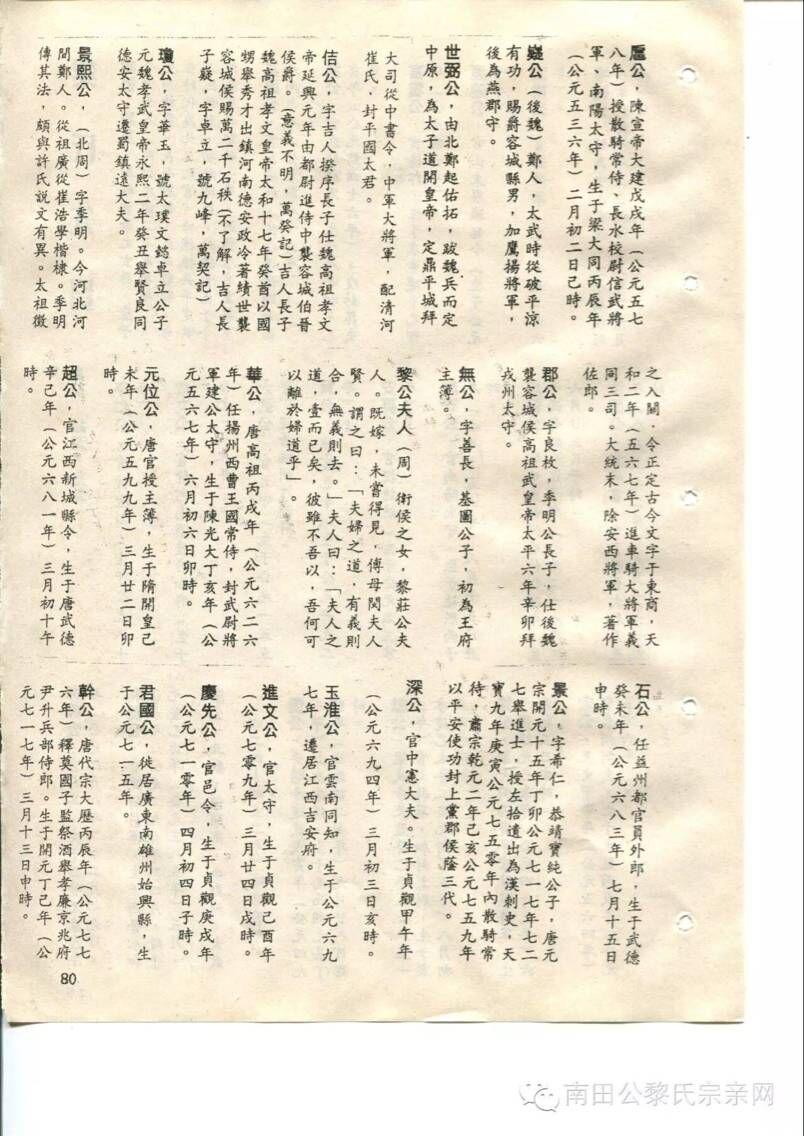 扈公，陳宣帝大建戊戌年（公元五七
八年）授散騎常侍、長水校尉信武將
軍、南陽太守，生于梁大同丙辰年
（公元五三六年）二月初二日己時。
嶷公（後魏）鄭人，太武時從破平涼
有功，賜爵容城縣男，加鷹揚將軍，
後為燕郡守。
世弼公，由北鄭起佑拓，跋魏兵而定
中原，為太子道開皇帝，定鼎平城拜
大司從中書令，中軍大將軍，配清河
崔氏，封平國太君。
佶公，字吉人揆序長子仕魏高祖孝文
帝延興元年由都尉進侍中襲容城伯晉
侯爵。（意義不明，萬癸記）吉人長子
魏高祖孝文皇帝太和十七年癸酋以國
甥舉秀才出鎮河南德安政冷著績世襲
容城侯賜萬二千石秩（不了解，吉人長
子嶷，字卓立，號九峰，萬契記）
瓊公，字華玉，號太璞文懿卓立公子
元魏孝武皇帝永熙二年癸丑舉賢良同
德安太守遷蜀鎮遠大夫。
景熙公，（北周）字季明。今河北河
間鄭人。從祖廣從崔浩學楷隸。季明
傳其法，頗與許氏說文有異。太祖徵
之入關，令正定古今文字于東商，天
和二年（五六七年）進車騎大將軍義
同三司。大統末，除安西將軍，著作
佐郎。
郡公，字良枚，季明公長子，仕後魏
襲容城侯高祖武皇帝太平六年辛卯拜
戎州太守。
無公，字善長，基圖公子，初為王府
主簿。
黎公夫人（周）衛侯之女，黎莊公夫
人。既嫁，未嘗得見，傅母閔夫人
賢。謂之曰：「夫婦之道，有義則
合，無義則去。」夫人曰：「夫人之
道，壹而已矣，彼雖不吾以，吾何可
以離於婦道乎」。
華公，唐高祖丙戌年（公元六二六
年）任揚州西曹王國常侍，封武尉將
軍建公太守，生于陳光大丁亥年（公
元五六七年）六月初六日卯時。
元位公，唐官授主簿，生于隋開皇己
未年（公元五九九年）三月廿二日卯
時。
超公，官江西新城縣令，生于唐武德
辛己年（公元六八一年）三月初十午
時。
石公，任益州都官員外郎，生于武德
癸未年（公元六八三年）七月十五日
申時。
景公，字希仁，恭靖寶純公子，唐元
宗開元十五年丁卯公元七一七年七二
七舉進士，授左拾遺出為漢刺史，天
寶九年庚寅公元七五零年內散騎常
待，肅宗乾元二年己亥公元七五九年
以平安使功封上黨郡侯蔭三代。
深公，官中憲大夫。生于貞觀甲午年
（公元六九四年）三月初三日亥時。
玉淮公，官雲南同知，生于公元六九
七年，遷居江西吉安府。
進文公，官太守，生于貞觀己酉年
（公元七零九年）三月廿四日戌時。
慶先公，官邑令，生于貞觀庚戌年
（公元七一零年）四月初四日子時。
君國公，徙居廣東南雄州始興縣，生
于公元七一五年。
幹公，唐代宗大歷丙辰年（公元七七
六年）釋莫國子監祭酒舉孝廉京兆府
尹升兵部侍郎。生于開元丁己年（公
元七一七年）三月十三日申時。
80
南田公黎氏宗亲网